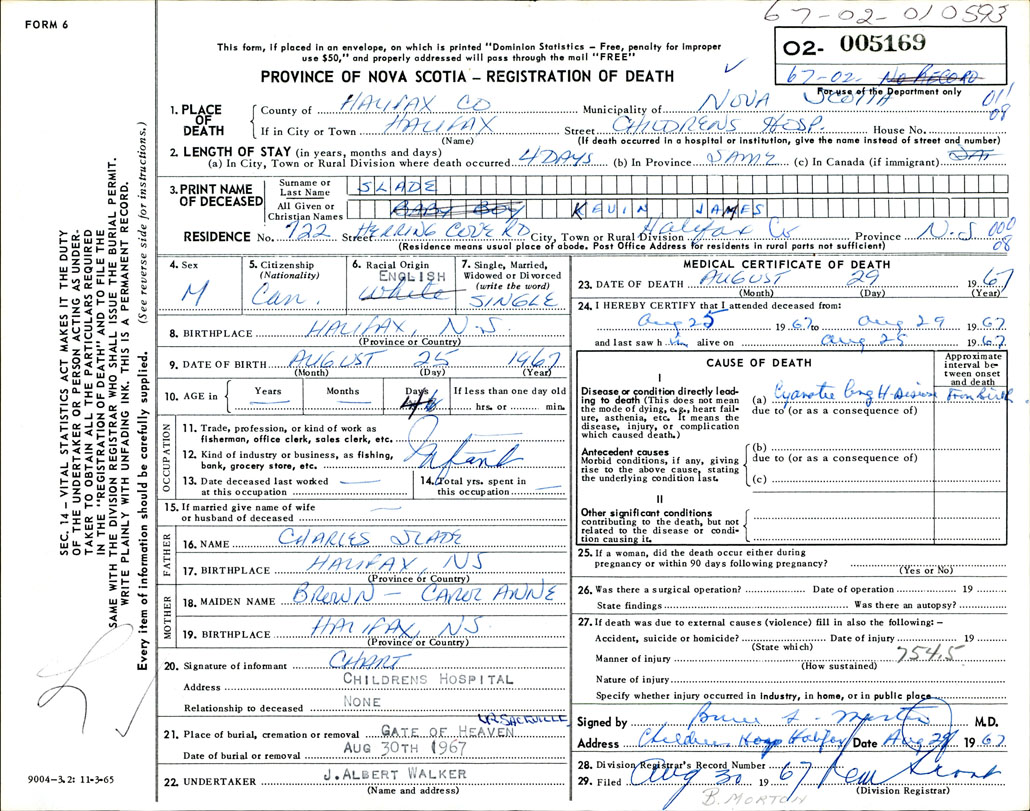 67-02-010593
FORM 6
This form, if placed in an envelope, on which is printed "Dominion Statistics – Free, penalty for improper
use $50," and properly addressed will pass through the mail "FREE"
02- 005169
67-02. No RECORD
For use of the Department only
PROVINCE OF NOVA SCOTIA – REGISTRATION OF DEATH
1. PLACE OF DEATH
County of HALIFAX CO Municipality of NOVA SCOTIA 011
08
If in City or Town HALIFAX Street CHILDRENS HOSP. House No.
(Name) (If death occurred in a hospital or institution, give the name instead of street and number)
2. LENGTH OF STAY (in years, months and days)
(a) In City, Town or Rural Division where death occurred 4 DAYS (b) In Province SAME (c) In Canada (if immigrant)
3. PRINT NAME OF DECEASED
Surname or Last Name SLADE
All Given or Christian Names BABY BOY KEVIN JAMES
RESIDENCE No. 722 Street HERRING COVE RD City, Town or Rural Division Halifax Co Province N.S 000
08
(Residence means usual place of abode. Post Office Address for residents in rural parts not sufficient)
4. Sex
M
5. Citizenship
(Nationality)
Can.
6. Racial Origin
ENGLISH
White
7. Single, Married,
Widowed or Divorced
(write the word)
SINGLE
8. BIRTHPLACE HALIFAX, N.S.
(Province or Country)
9. DATE OF BIRTH AUGUST 25 1967
(Month) (Day) (Year)
10. AGE in
Years
Months
Days
4
If less than one day old
hrs. or min.
OCCUPATION
11. Trade, profession, or kind of work as
fisherman, office clerk, sales clerk, etc.
12. Kind of industry or business, as fishing,
bank, grocery store, etc.
Infant
13. Date deceased last worked
at this occupation
14. Total yrs. spent in
this occupation
15. If married give name of wife
or husband of deceased
FATHER
16. NAME CHARLES SLADE
17. BIRTHPLACE HALIFAX NS
(Province or Country)
MOTHER
18. MAIDEN NAME BROWN – CAROL ANNE
19. BIRTHPLACE HALIFAX, NS.
(Province or Country)
20. Signature of informant CHART
Address CHILDRENS HOSPITAL
Relationship to deceased NONE
21. Place of burial, cremation or removal GATE OF HEAVEN
SACKVILLE
Date of burial or removal AUG 30TH 1967
22. UNDERTAKER J. ALBERT WALKER
(Name and address)
MEDICAL CERTIFICATE OF DEATH
23. DATE OF DEATH AUGUST 29 1967
(Month) (Day) (Year)
24. I HEREBY CERTIFY that I attended deceased from:
Aug 25 1967 to Aug 29 1967
and last saw h im alive on Aug 25 1967
CAUSE OF DEATH
Approximate interval between onset and death
I
Disease or condition directly leading to death (This does not mean the mode of dying, e.g., heart failure, asthenia, etc. It means the disease, injury, or complication which caused death.)
(a) Cyanotic Cong H Disease From Birth
due to (or as a consequence of)
Antecedent causes
Morbid conditions, if any, giving rise to the above cause, stating the underlying condition last.
(b)
due to (or as a consequence of)
(c)
II
Other significant conditions
contributing to the death, but not related to the disease or condition causing it.
25. If a woman, did the death occur either during
pregnancy or within 90 days following pregnancy?
(Yes or No)
26. Was there a surgical operation? Date of operation 19
State findings Was there an autopsy?
27. If death was due to external causes (violence) fill in also the following: –
Accident, suicide or homicide? Date of injury 19
(State which)
Manner of injury 754.5
(How sustained)
Nature of injury
Specify whether injury occurred in industry, in home, or in public place
Signed by Bruce S. Morton M.D.
Address Children Hosp Halifax Date Aug 29 1967
28. Division Registrar's Record Number
29. Filed Aug 30 1967
(Division Registrar)
B. MORTON
SEC. 14 – VITAL STATISTICS ACT MAKES IT THE DUTY
OF THE UNDERTAKER OR PERSON ACTING AS UNDER-
TAKER TO OBTAIN ALL THE PARTICULARS REQUIRED
IN THE "REGISTRATION OF DEATH" AND TO FILE THE
SAME WITH THE DIVISION REGISTRAR WHO SHALL ISSUE THE BURIAL PERMIT.
WRITE PLAINLY WITH UNFADING INK. THIS IS A PERMANENT RECORD.
Every item of information should be carefully supplied. (See reverse side for instructions.)
9004-3.2: 11-3-65